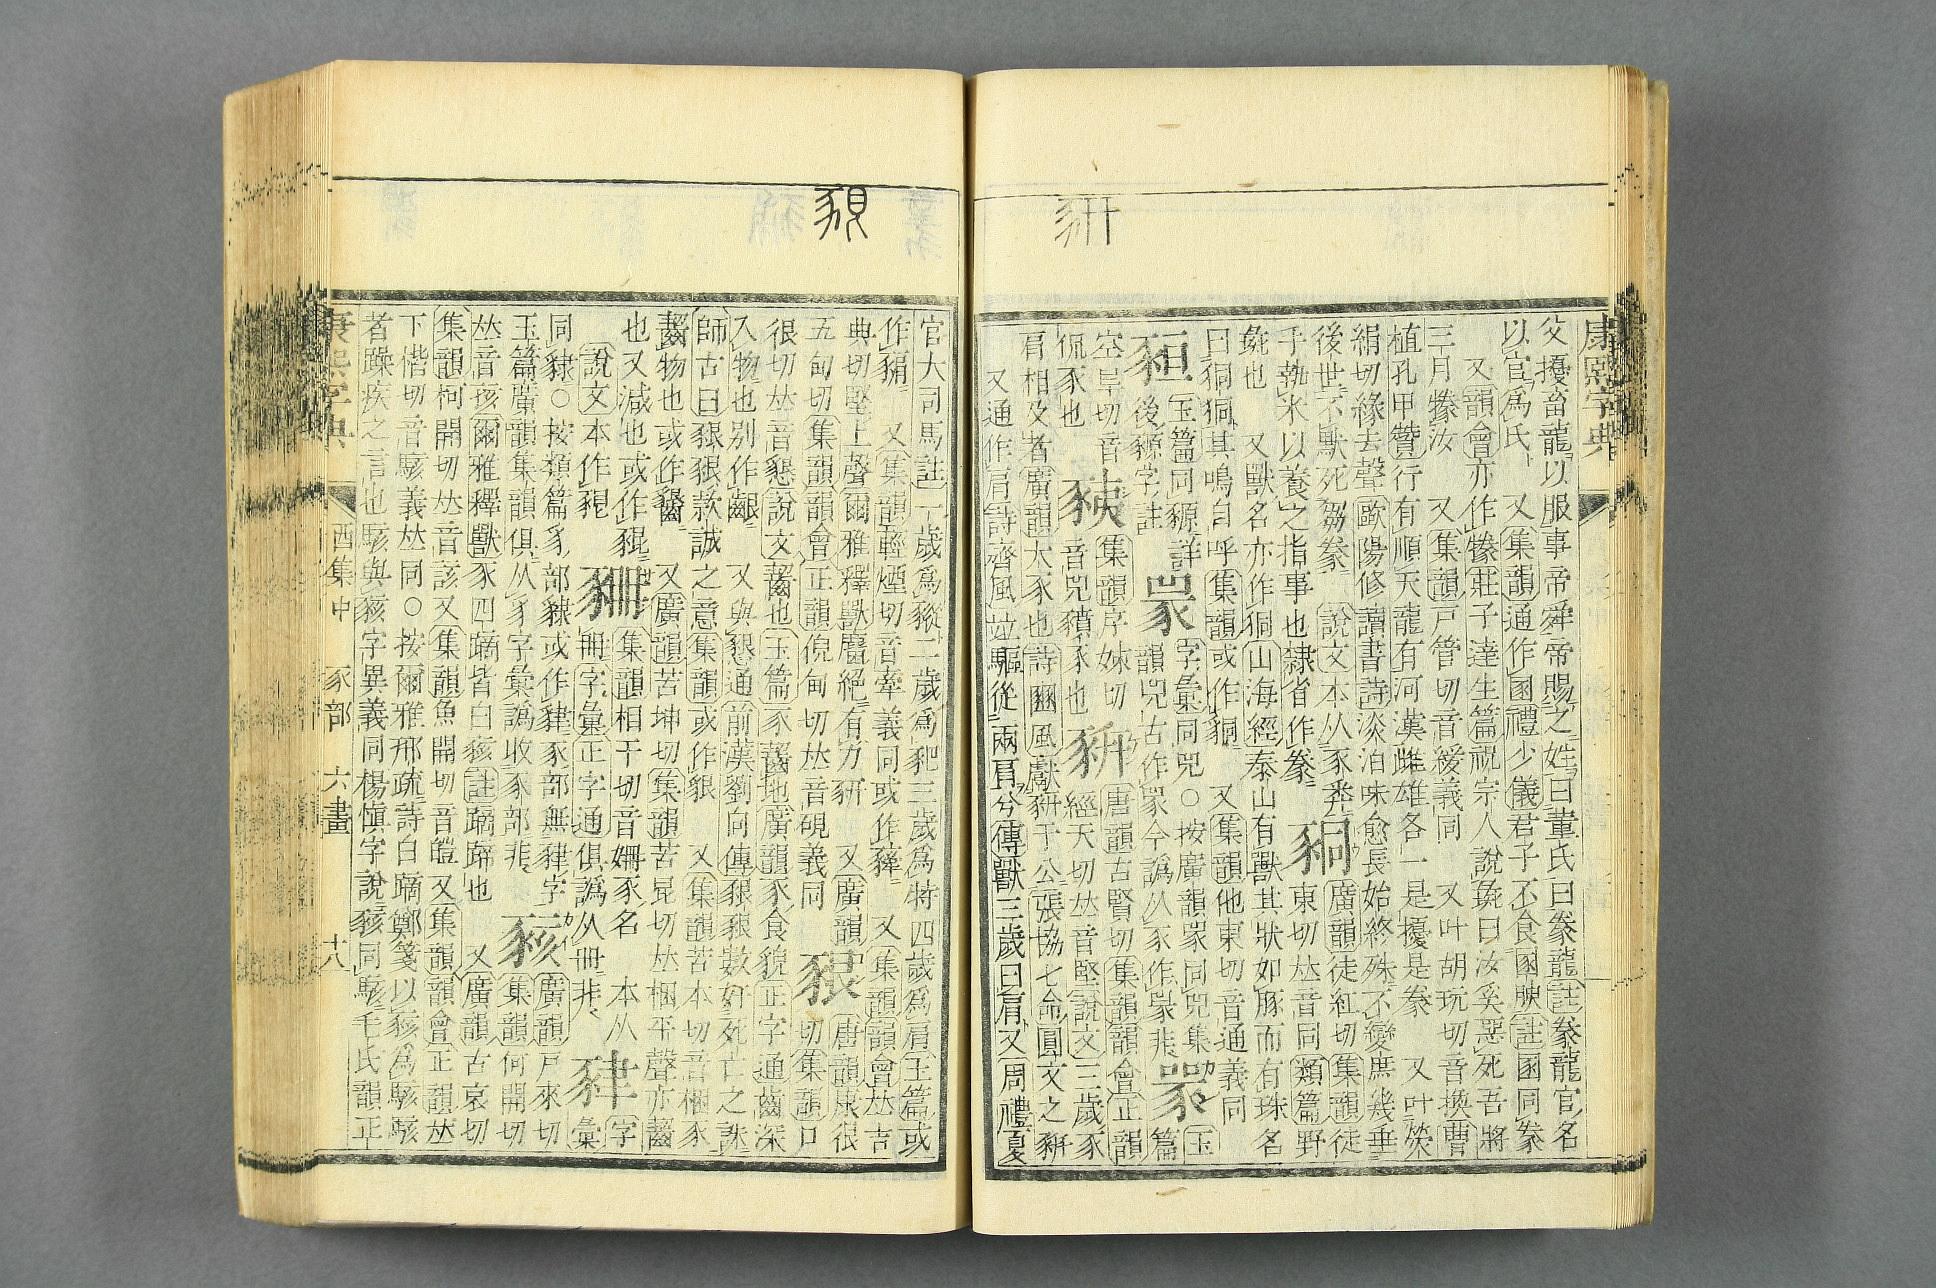 康熙字典
父擾畜龍以服事帝舜帝賜之姓曰董氏曰豢龍註豢龍官名
以官爲氏 又集韻通作圂禮少儀君子不食圂腴註圂同豢
又韻會亦作㹖莊子達生篇祝宗人說彘曰汝奚惡死吾將
三月㹖汝 又集韻戸管切音緩義同 又叶胡玩切音換曹
植孔甲贊行有順天龍有河漢雌雄各一是擾是豢 又叶熒
絹切緣去聲歐陽修讀書詩淡泊味愈長始終殊不變庶幾垂
後世不默死芻豢 說文本从豕
手執米以養之指事也隸省作豢 豞
彘也 又獸名亦作狪山海經泰山有獸其狀如豚而有珠名
曰狪狪其鳴自呼集韻或作㹿 又集韻他東切音通義同
豲
玉篇同豲詳後豲字註
字彙同兕○按廣韻
豜 唐韻古賢切集韻韻會正韻
經天切𠀤音堅說文三歲豕
肩相及者廣韻大豕也詩豳風獻豜于公張協七命圓文之豜
又通作肩詩齊風竝驅從兩肩兮傳獸三歲曰肩又周禮夏
豜
豤
官大司馬註一歲爲豵二歲爲豝三歲爲特四歲爲肩玉篇或
作豣 又集韻輕煙切音牽義同或作㹂 又集韻韻會𠀤吉
典切堅上聲爾雅釋獸麕絕有力豜 又廣韻
五甸切集韻韻會正韻倪甸切𠀤音硯義同 豤 唐韻康很切集韻口
很切𠀤音懇說文齧也玉篇豕齧地廣韻豕食貌正字通齒深
入物也別作齦 又與懇通前漢劉向傳豤豤數奸死亡之誅
師古曰豤豤款誠之意集韻或作貇 又集韻苦本切音梱豕
齧物也或作齦 又廣韻苦坤切集韻苦昆切𠀤梱平聲亦齧
也又減也或作㹞
說文本作豤
集韻相干切音姍豕名 本从
冊字彙正字通俱譌从冊非
同豩○按類篇豸部
玉篇廣韻集韻俱从豸字彙譌收豕部非 豥 廣韻戸來切
集韻何開切
𠀤音孩爾雅釋獸豕四蹢皆白豥註蹢蹄也 又廣韻古哀切
集韻柯開切𠀤音該又集韻魚開切音皚又集韻韻會正韻𠀤
下楷切音駭義𠀤同○按爾雅邢疏詩白蹢鄭箋以豥爲駭駭
者躁疾之言也駭與豥字異義同楊慎字說豥同駭毛氏韻正
康熙字典 酉集中 豕部 六畫 十八